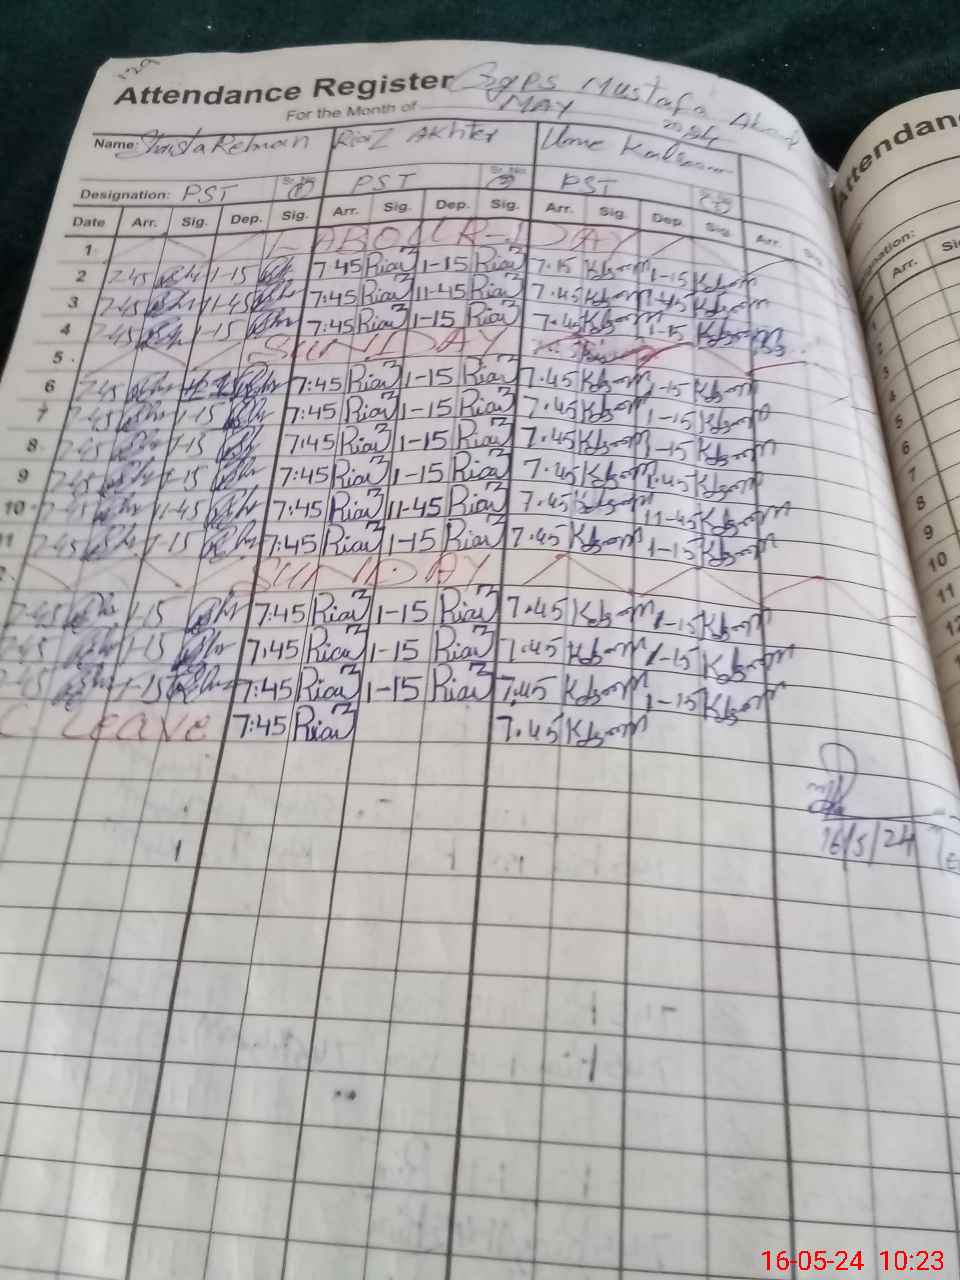 129
Attendance Register Ggps Mustafa Abad
For the Month of MAY 2024
Name: Shaista Rehman Riaz Akhter Ume Kalsoom
Designation: PST Sr. No. PST Sr. No. PST Sr. No.
Date Arr. Sig. Dep. Sig. Arr. Sig. Dep. Sig. Arr. Sig. Dep. Sig. Arr. Sig.
1 LABOUR-DAY
2 7-45 1-15 7:45 Riaz 1-15 Riaz 7.45 Klsoom 1-15 Klsoom
3 7-45 11-45 7:45 Riaz 11-45 Riaz 7.45 Klsoom 11-45 Klsoom
4 7-45 1-15 7:45 Riaz 1-15 Riaz 7.45 Klsoom 1-15 Klsoom
5 SUNDAY
6 7-45 7:45 Riaz 1-15 Riaz 7.45 Klsoom 1-15 Klsoom
7 7-45 1-15 7:45 Riaz 1-15 Riaz 7.45 Klsoom 1-15 Klsoom
8 7-45 1-15 7:45 Riaz 1-15 Riaz 7.45 Klsoom 1-15 Klsoom
9 7-45 1-15 7:45 Riaz 1-15 Riaz 7.45 Klsoom Klsoom
10 7-45 11-45 7:45 Riaz 11-45 Riaz 7.45 Klsoom 11-45 Klsoom
11 7-45 1-15 7:45 Riaz 1-15 Riaz 7.45 Klsoom 1-15 Klsoom
SUNDAY
7-45 1-15 7:45 Riaz 1-15 Riaz 7.45 Klsoom 1-15 Klsoom
7-45 1-15 7:45 Riaz 1-15 Riaz 7.45 Klsoom 1-15 Klsoom
7-45 1-15 7:45 Riaz 1-15 Riaz 7.45 Klsoom 1-15 Klsoom
C Leave 7:45 Riaz 7.45 Klsoom
16/5/24
Attendan
Arr. Si
1
2
3
4
5
6
7
8
9
10
11
12
16-05-24 10:23